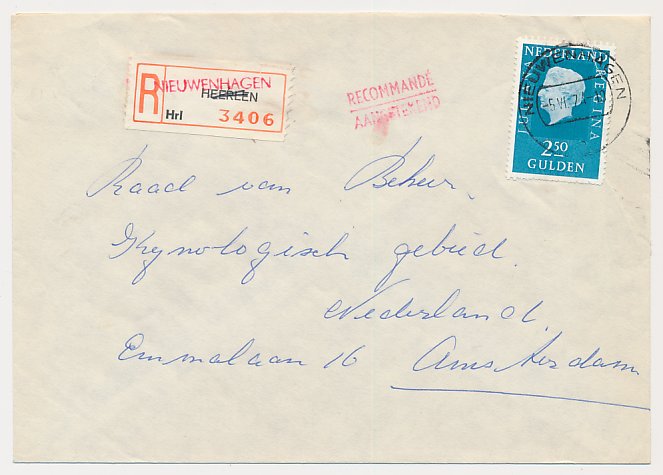 NIEUWENHAGEN
HEERLEN
R
Hrl 3406
RECOMMANDÉ
AANGETEKEND
NIEUWENHAGEN
NEDERLAND
JULIANA REGINA
2 50
GULDEN
Raad van Beheer.
Kynologisch gebied.
Nederland.
Emmalaan 16 Amsterdam